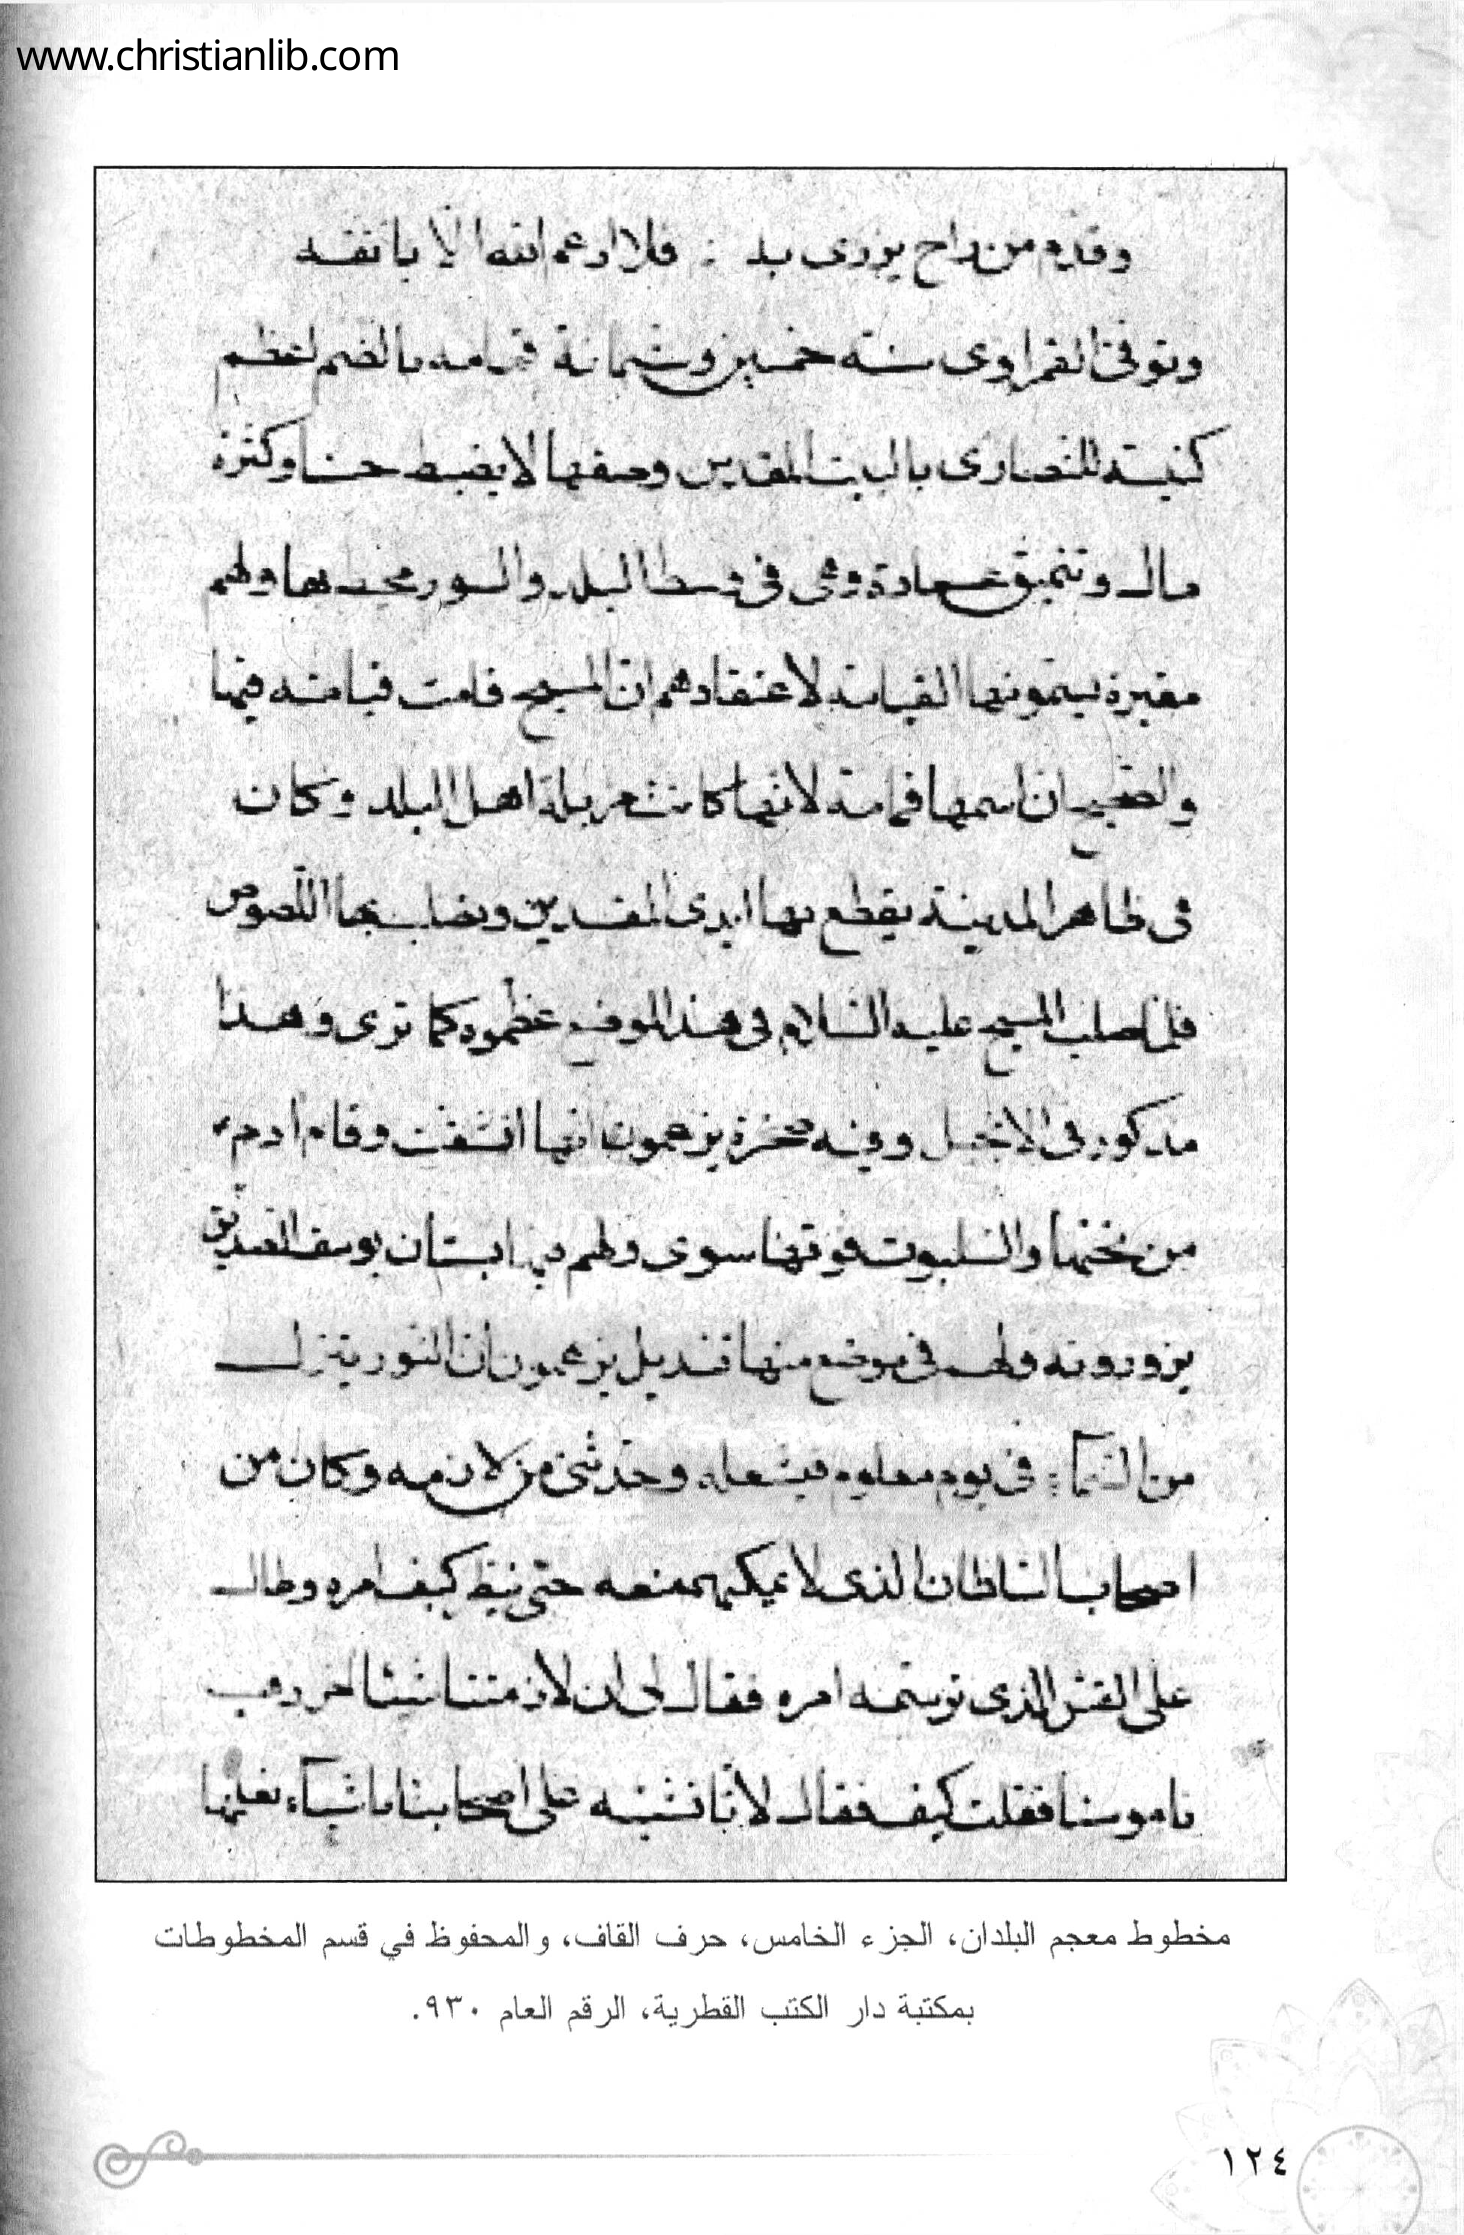 www.christianlib.com
وقدم من راح يزرى بد : فلا ارغم الله الا بانفه
وتوفى القمراوى سنه خمسين وستمانة قمامه بالضم اعظم
كنيسة للنصارى بالبيت المقدس وصفها لا يضبط حسنا وكثرة
مال وتنميق عمارة وهى فى وسط البلد والسور محيط بها ولهم
مقبرة يسمونها القيامة لاعتقادهم ان المسيح قامت قيامته فيها
والصحيح ان اسمها قمامة لانها كانت مزبلة اهل البلد وكان
فى ظاهر المدينة يقطع بها ايدى المفسدين ويصلب بها اللصوص
فلما صلب المسيح عليه السلام فى هذا الموضع عظموه كما ترى وهذا
مذكور فى الانجيل وفيه صخرة يزعمون انها انشقت وقام ادم
من تحتها والصلبوت فوقها سوى ولهم فيها بستان يوسف الصديق
يزورونه ولهم فى موضع منها قنديل يزعمون ان النور ينزل
من السماء فى يوم معلوم فيشعله وحدثنى من لازمه وكان من
اصحاب السلطان الذى لا يمكنهم منعه حتى ينظر كيف امره وطال
على القس الذى برسمه امره فقال لى ان لازمتنا شيئا اخر ذهب
ناموسنا فقلت كيف فقال لانا نشبه على اصحابنا باشياء نعملها
مخطوط معجم البلدان، الجزء الخامس، حرف القاف، والمحفوظ في قسم المخطوطات
بمكتبة دار الكتب القطرية، الرقم العام ٩٣٠.
١٢٤